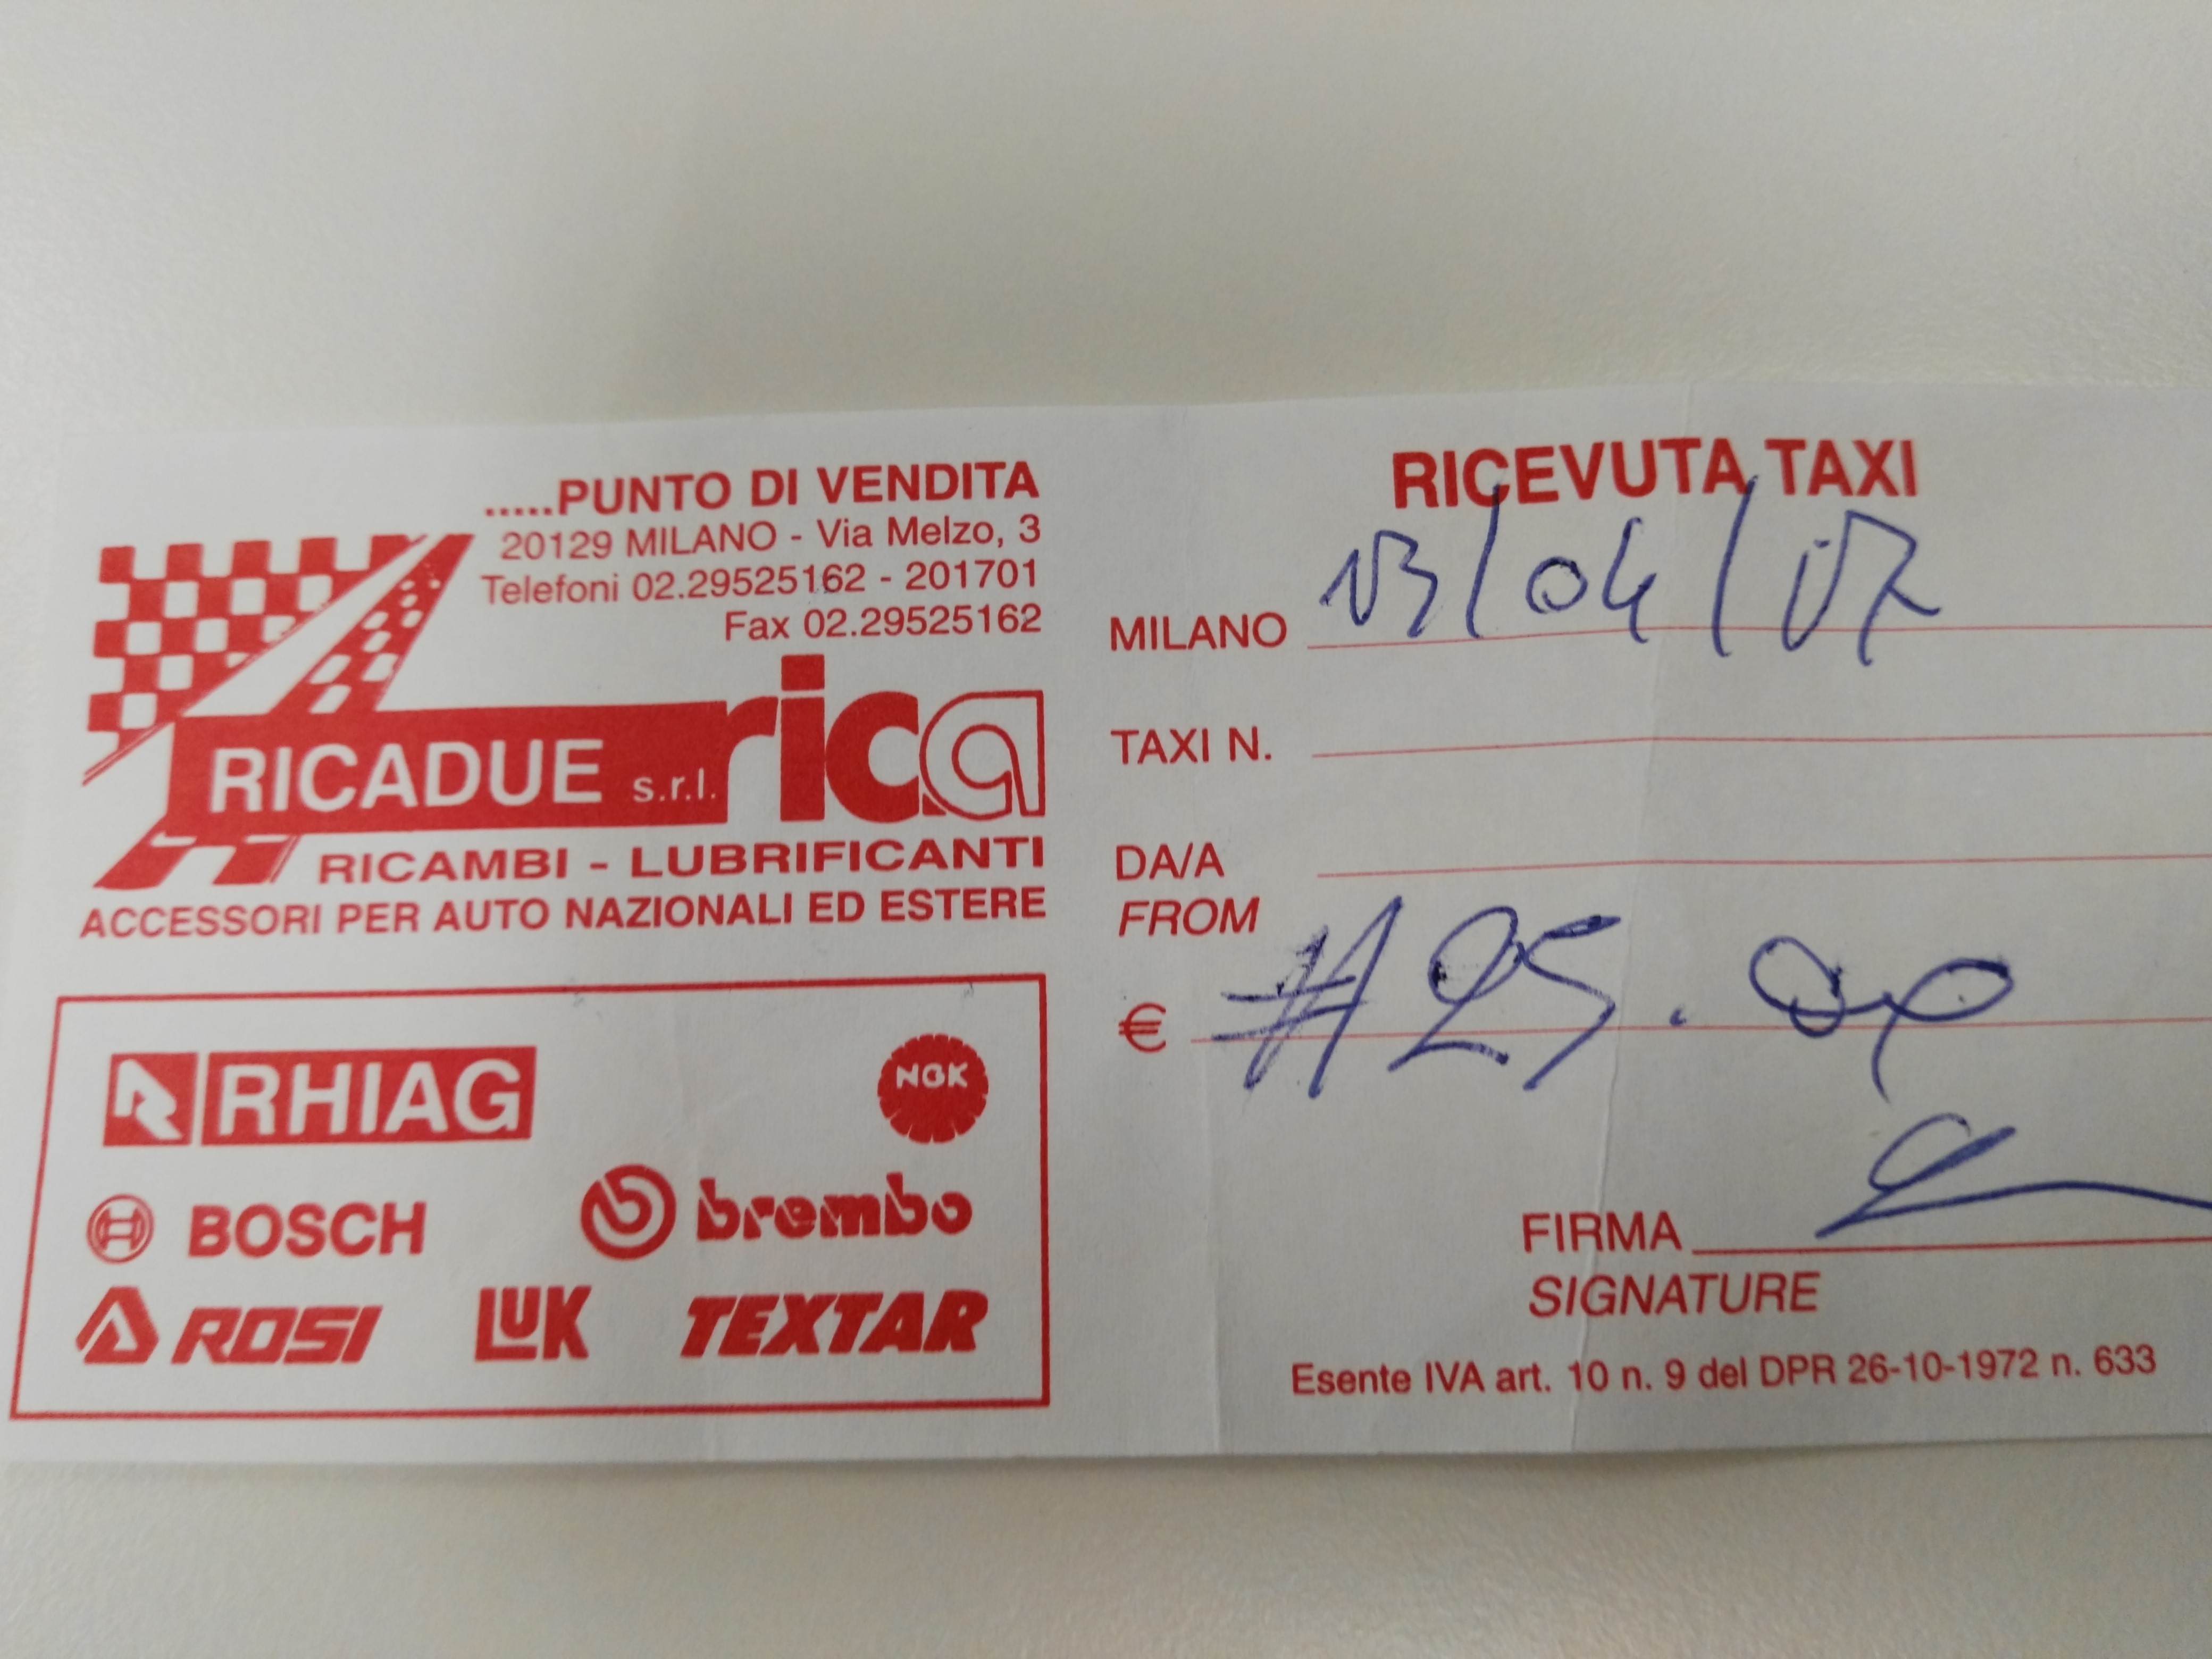 .....PUNTO DI VENDITA
20129 MILANO - Via Melzo, 3
Telefoni 02.29525162 - 201701
Fax 02.29525162
RICADUE s.r.l. rica
RICAMBI - LUBRIFICANTI
ACCESSORI PER AUTO NAZIONALI ED ESTERE
RHIAG
NGK
BOSCH
brembo
ROSI
LUK
TEXTAR
RICEVUTA TAXI
MILANO 13/04/17
TAXI N.
DA/A
FROM
€ # 25.00
FIRMA
SIGNATURE
Esente IVA art. 10 n. 9 del DPR 26-10-1972 n. 633